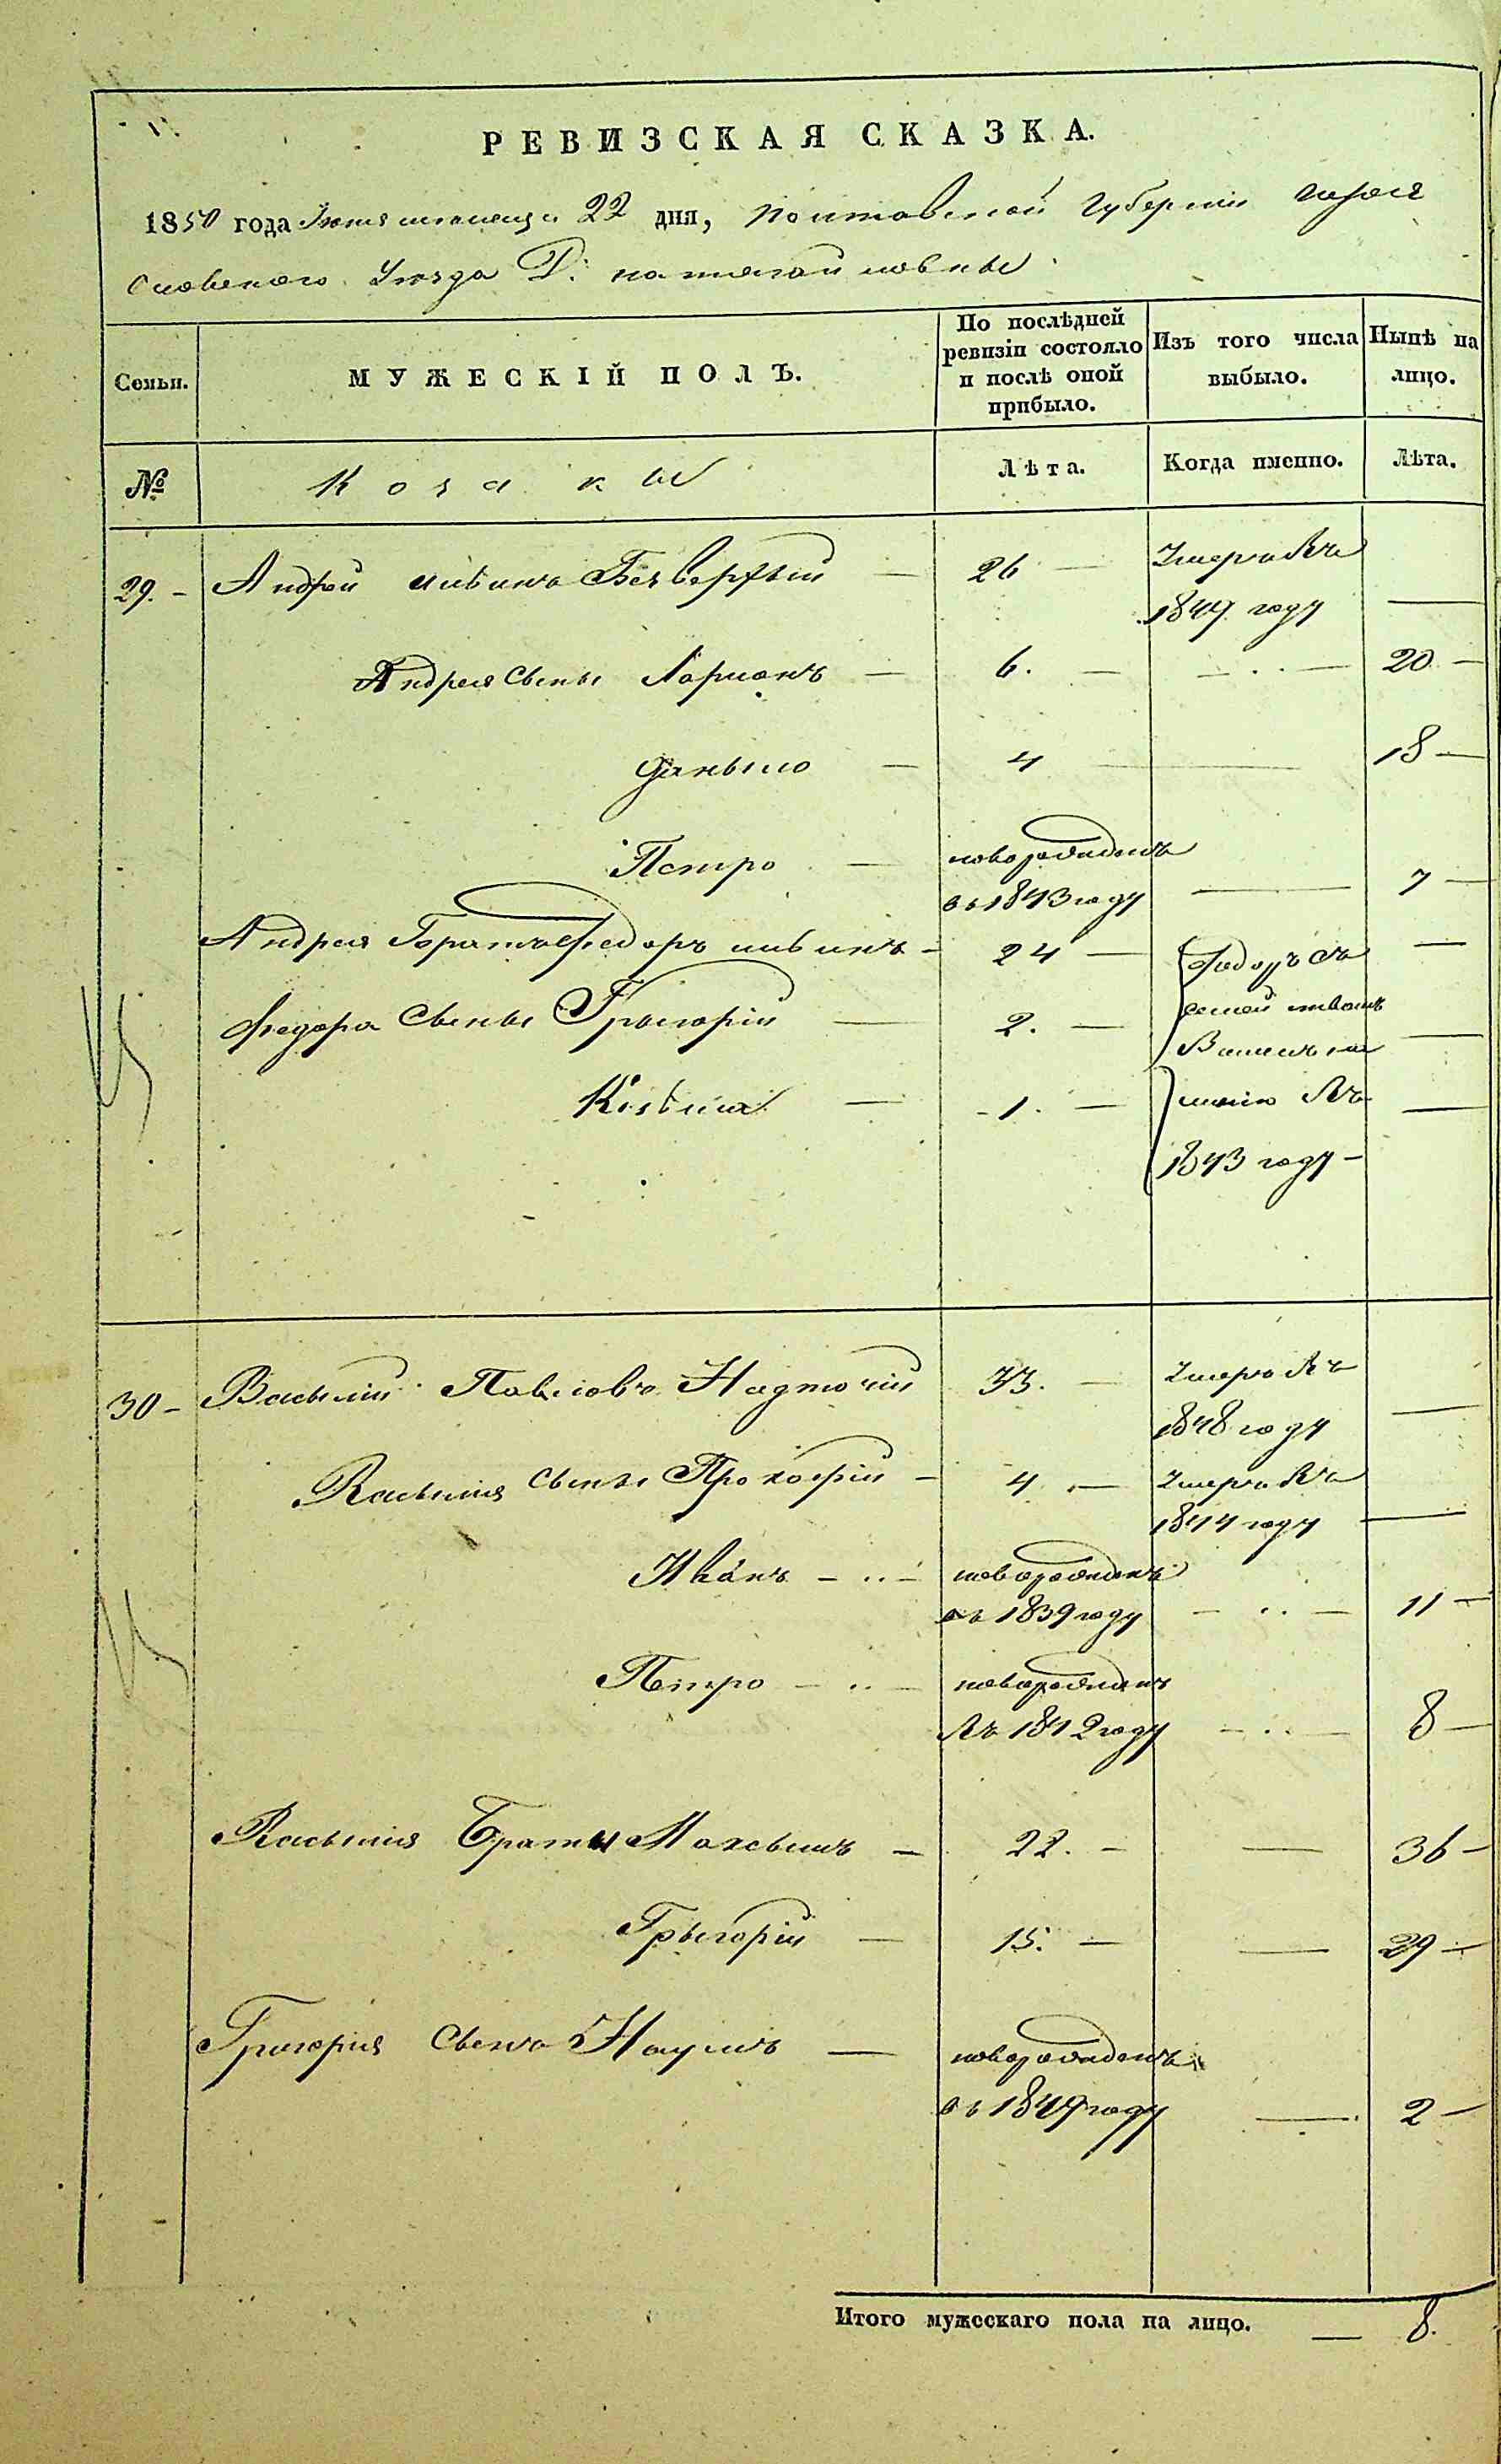 РЕВИЗСКАЯ СКАЗКА.
1850 года Июня месяца 22 дня, Полтавской Губернии
Уезда Д:
Семьи.
МУЖЕСКІЙ ПОЛЪ.
По послѣдней ревизіи состояло и послѣ оной прибыло.
Изъ того числа выбыло.
Нынѣ на лицо.
№
Козакы
Лѣта.
Когда именно.
Лѣта.
29. – Андрей Безверхый — 26 — Умеръ Въ
1849 году —
Андрея сыны Ларионъ — 6. — — . . — 20 —
Даныло — 4 — 18 —
Петро — новорожденъ
въ 1843 году — 7 —
Андрея Братъ Федоръ — 24 — Федоръ съ —
Федора Сыны Грыгорій — 2. — семействомъ —
1. — Въ —
1843 году –
30 – Васылій Павловъ Надточій 33. — Умеръ Въ
1848 году —
Васылия сыны Прокофій – 4. — Умеръ Въ
1844 году —
Иванъ – .. – новорожденъ
въ 1839 году – .. – 11 –
Петро – .. – новорожденъ
Въ 1842 году – .. – 8 –
Васылия Браты – 22. – — 36 –
Грыгорій — 15. – — 29 –
Григория Сынъ Наумъ — новорожденъ
въ 1849 году — 2 –
Итого мужескаго пола на лицо. — 8.